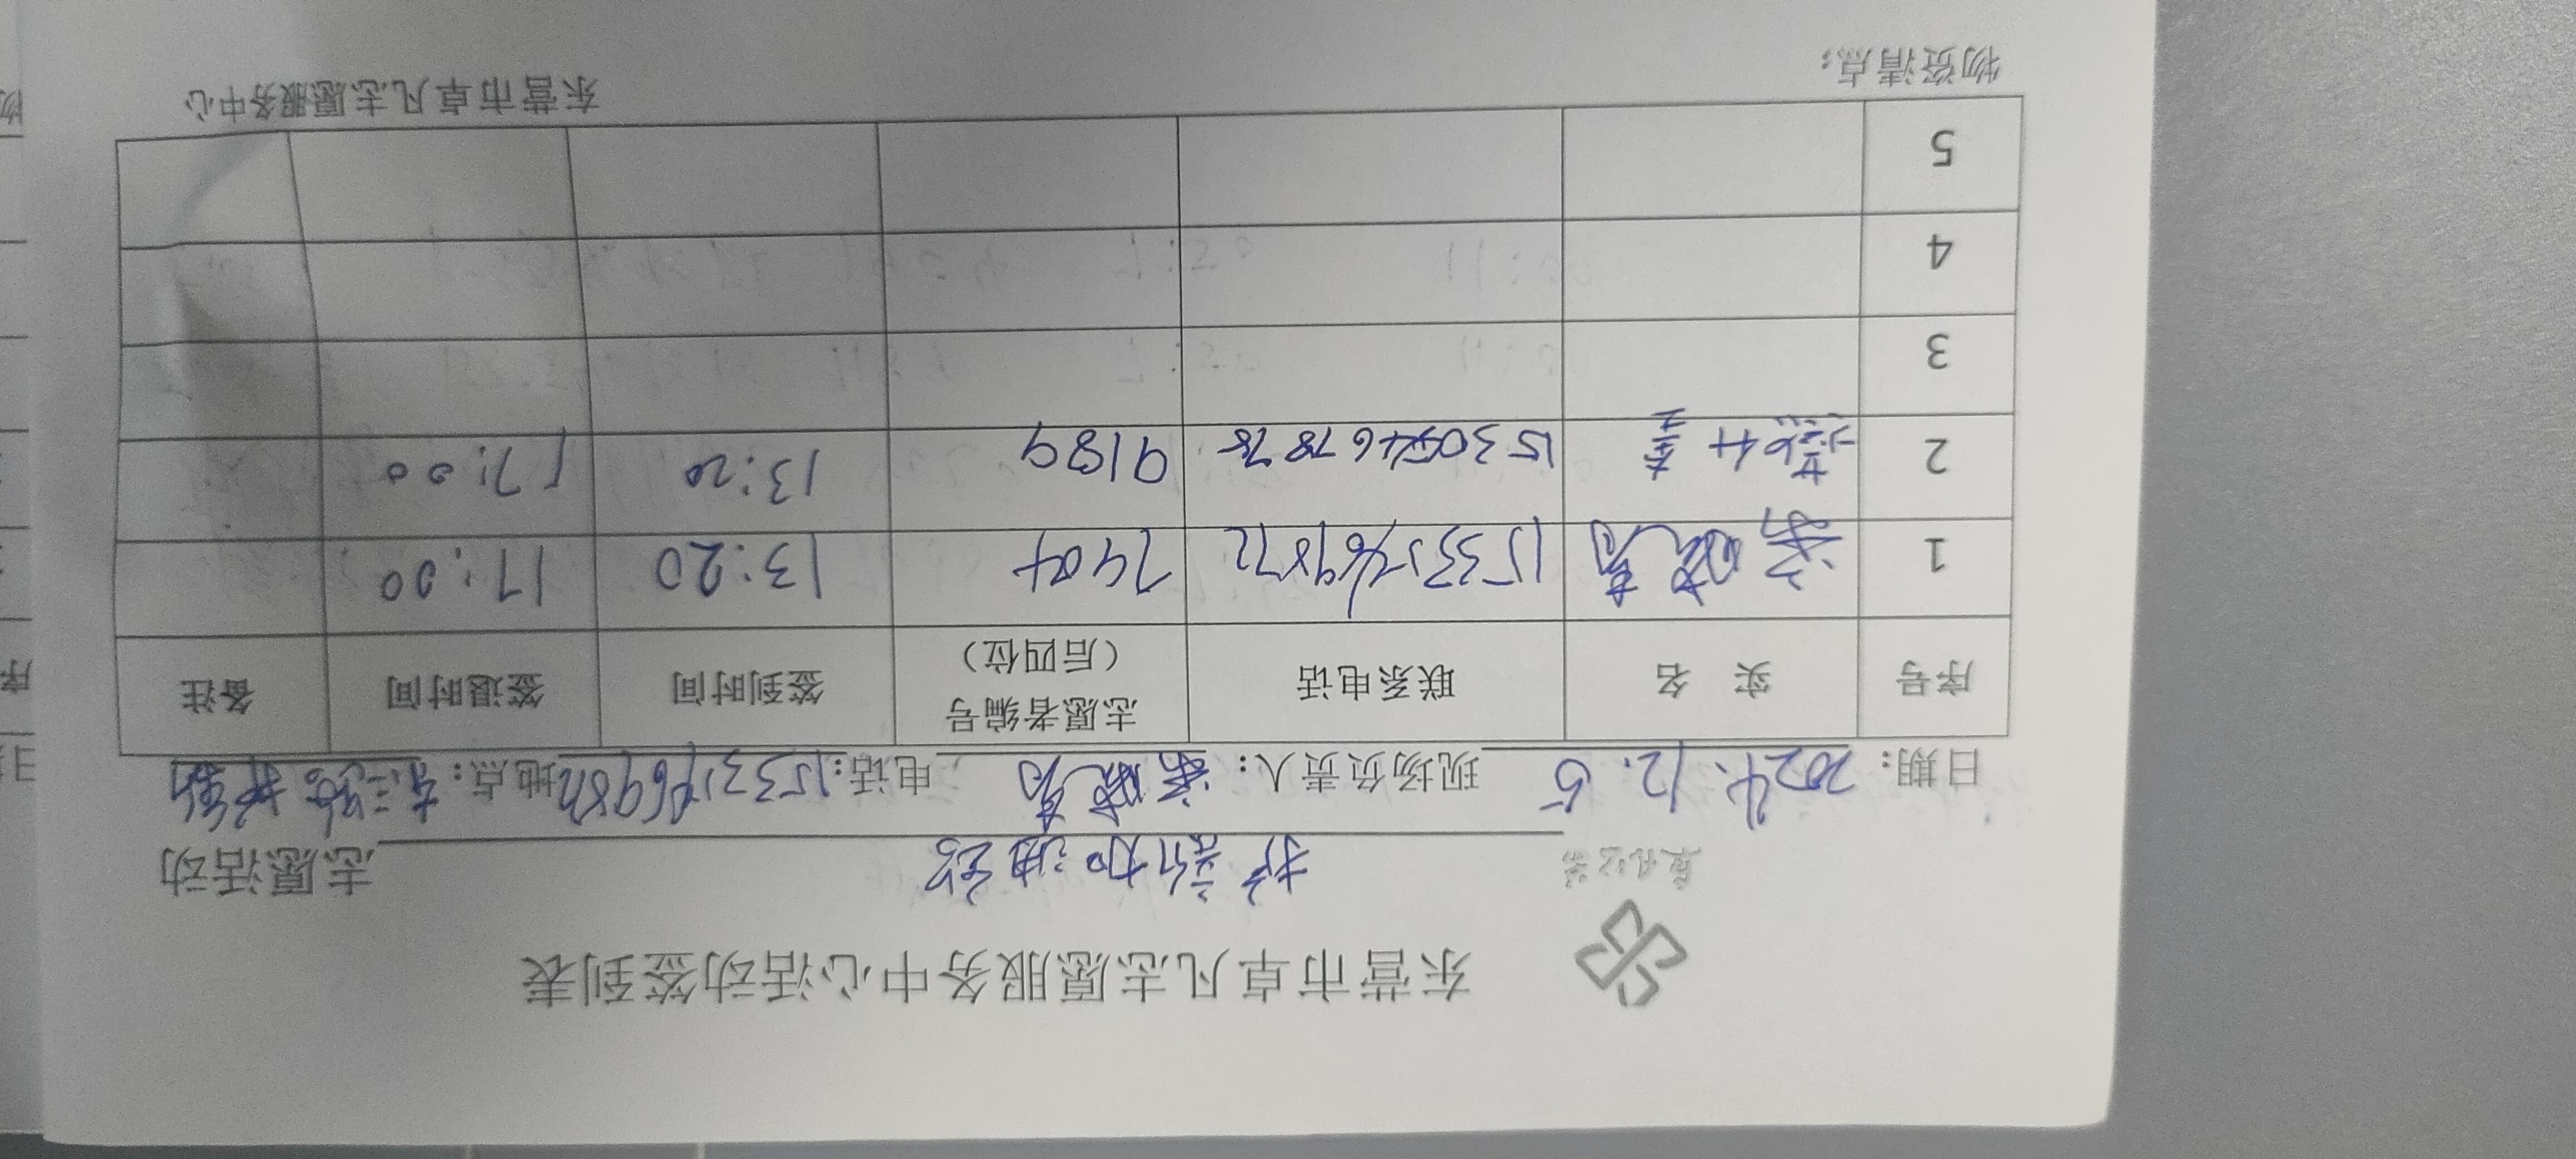 东营市卓凡志愿服务中心活动签到表
卓凡公益
护新加油站 志愿活动
日期: 2024.12.5 现场负责人: 梁晓秀 电话: 地点:
序号 实 名 联系电话 志愿者编号(后四位) 签到时间 签退时间 备注
1 梁晓秀 7404 13:20 17:00
2 9189 13:20 17:00
3
4
5
物资清点: 东营市卓凡志愿服务中心